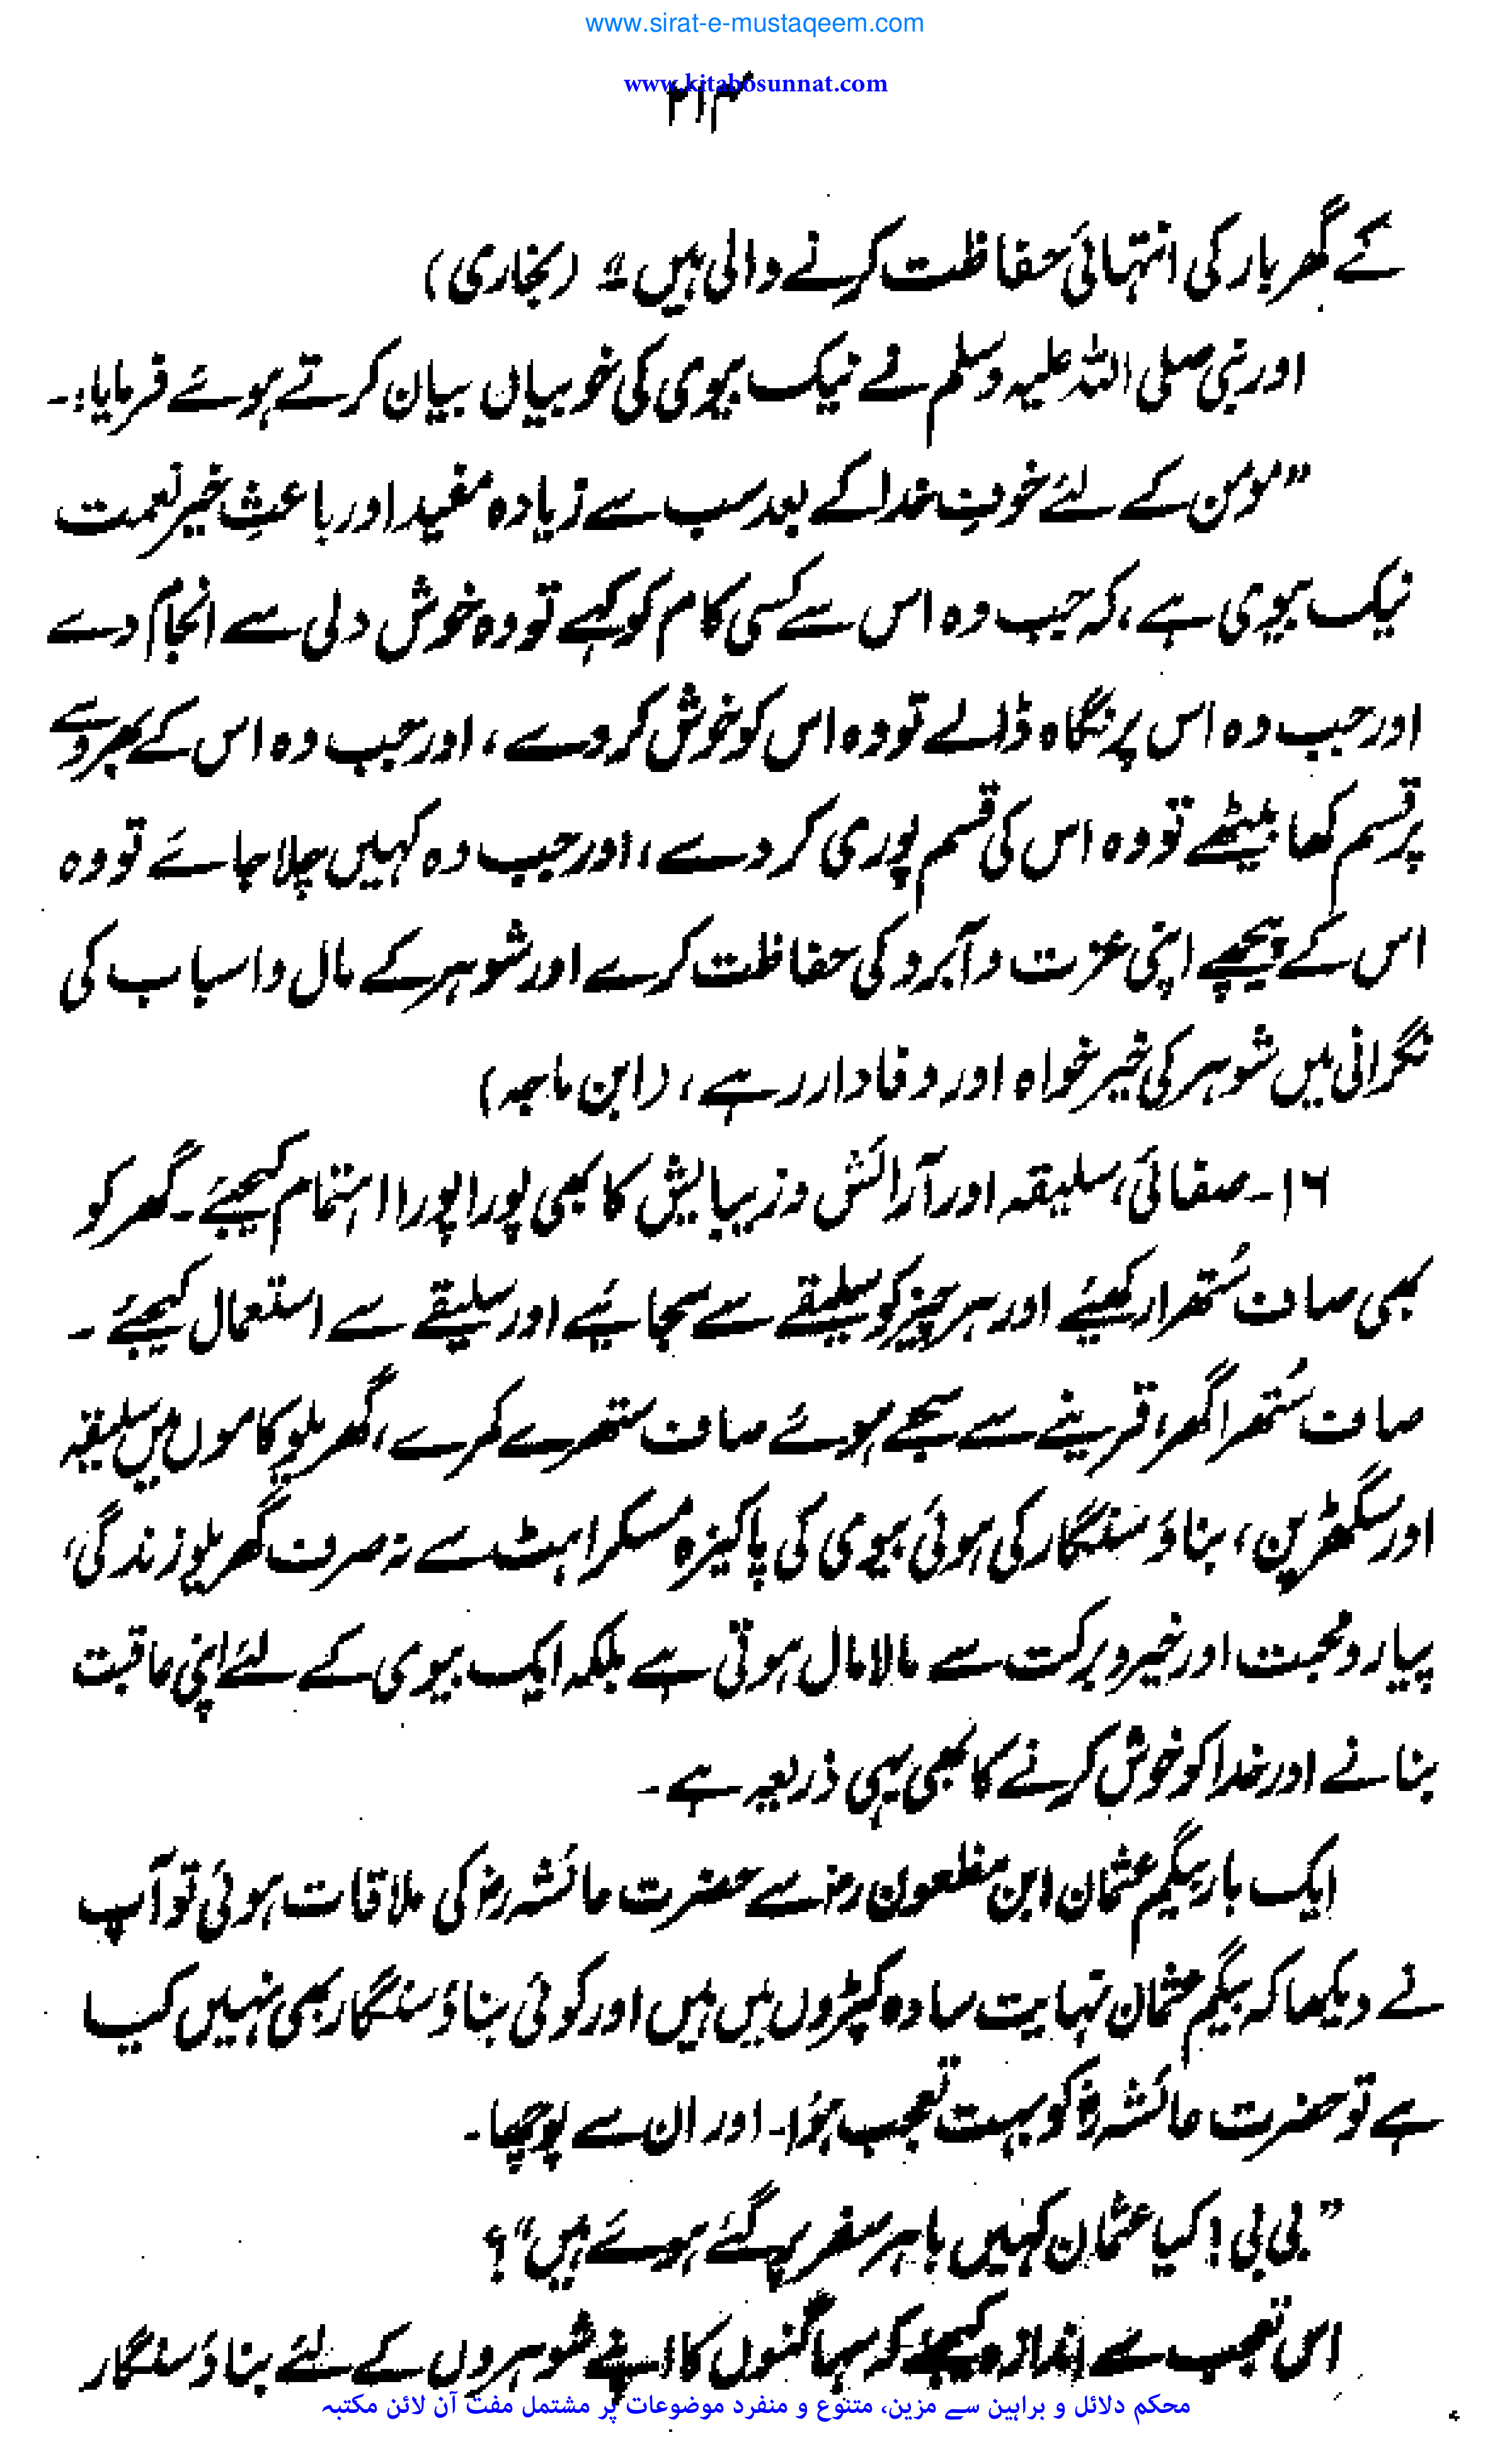 www.sirat-e-mustaqeem.com
www.kitabosunnat.com
۲۱۴
کے گھر بار کی انتہائی حفاظت کرنے والی ہیں ॥ (بخاری)
اور نبی صلی اللہ علیہ وسلم نے نیک بیوی کی خوبیاں بیان کرتے ہوئے فرمایا:۔
”مومن کے لئے خوفِ خدا کے بعد سب سے زیادہ مفید اور باعثِ خیر نعمت
نیک بیوی ہے، کہ جب وہ اس سے کسی کام کو کہے تو وہ خوش دلی سے انجام دے
اور جب وہ اس پر نگاہ ڈالے تو وہ اس کو خوش کر دے، اور جب وہ اس کے بھروسے
پر قسم کھا بیٹھے تو وہ اس کی قسم پوری کر دے، اور جب وہ کہیں چلا جائے تو وہ
اس کے پیچھے اپنی عزت و آبرو کی حفاظت کرے اور شوہر کے مال و اسباب کی
نگرانی میں شوہر کی خیر خواہ اور وفادار رہے، (ابن ماجہ)
۱۶۔ صفائی، سلیقہ اور آرائش و زیبایش کا بھی پورا پورا اہتمام کیجیئے۔ گھر کو
بھی صاف سُتھرا رکھیئے اور ہر چیز کو سلیقے سے سجائیے اور سلیقے سے استعمال کیجیئے ۔
صاف سُتھرا گھر، قرینے سے سجے ہوئے صاف ستھرے کمرے، گھریلو کاموں میں سلیقہ
اور سگھڑپن، بناؤ سنگار کی ہوئی بیوی کی پاکیزہ مسکراہٹ سے نہ صرف گھریلو زندگی،
پیار و محبت اور خیر و برکت سے مالامال ہوتی ہے بلکہ ایک بیوی کے لئے اپنی عاقبت
بنانے اور خدا کو خوش کرنے کا بھی یہی ذریعہ ہے ۔
ایک بار بیگم عثمان ابن مظعون رض سے حضرت عائشہ رض کی ملاقات ہوئی تو آپ
نے دیکھا کہ بیگم عثمان نہایت سادہ کپڑوں میں ہیں اور کوئی بناؤ سنگار بھی نہیں کیا
ہے تو حضرت عائشہ رض کو بہت تعجب ہؤا۔ اور ان سے پوچھا۔
”بی بی! کیا عثمان کہیں باہر سفر پر گئے ہوئے ہیں“؟
اس تعجب سے اندازہ کیجئے کہ سہاگنوں کا اپنے شوہروں کے لئے بناؤ سنگار
محکم دلائل و براہین سے مزین، متنوع و منفرد موضوعات پر مشتمل مفت آن لائن مکتبہ